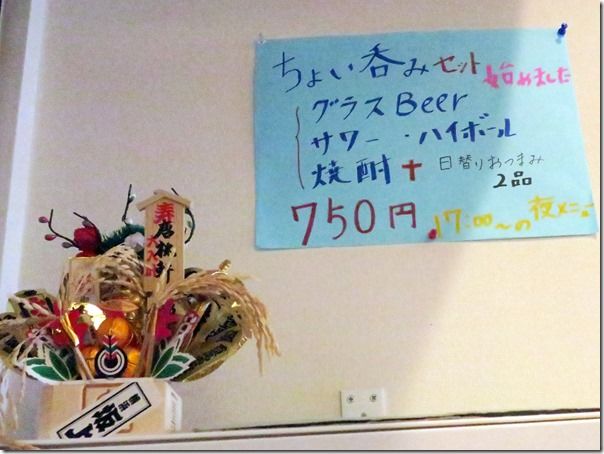 ちょい呑みセット始めました
グラスBeer
サワー・ハイボール
焼酎＋日替りおつまみ
2品
750円
17:00～の夜メニュー